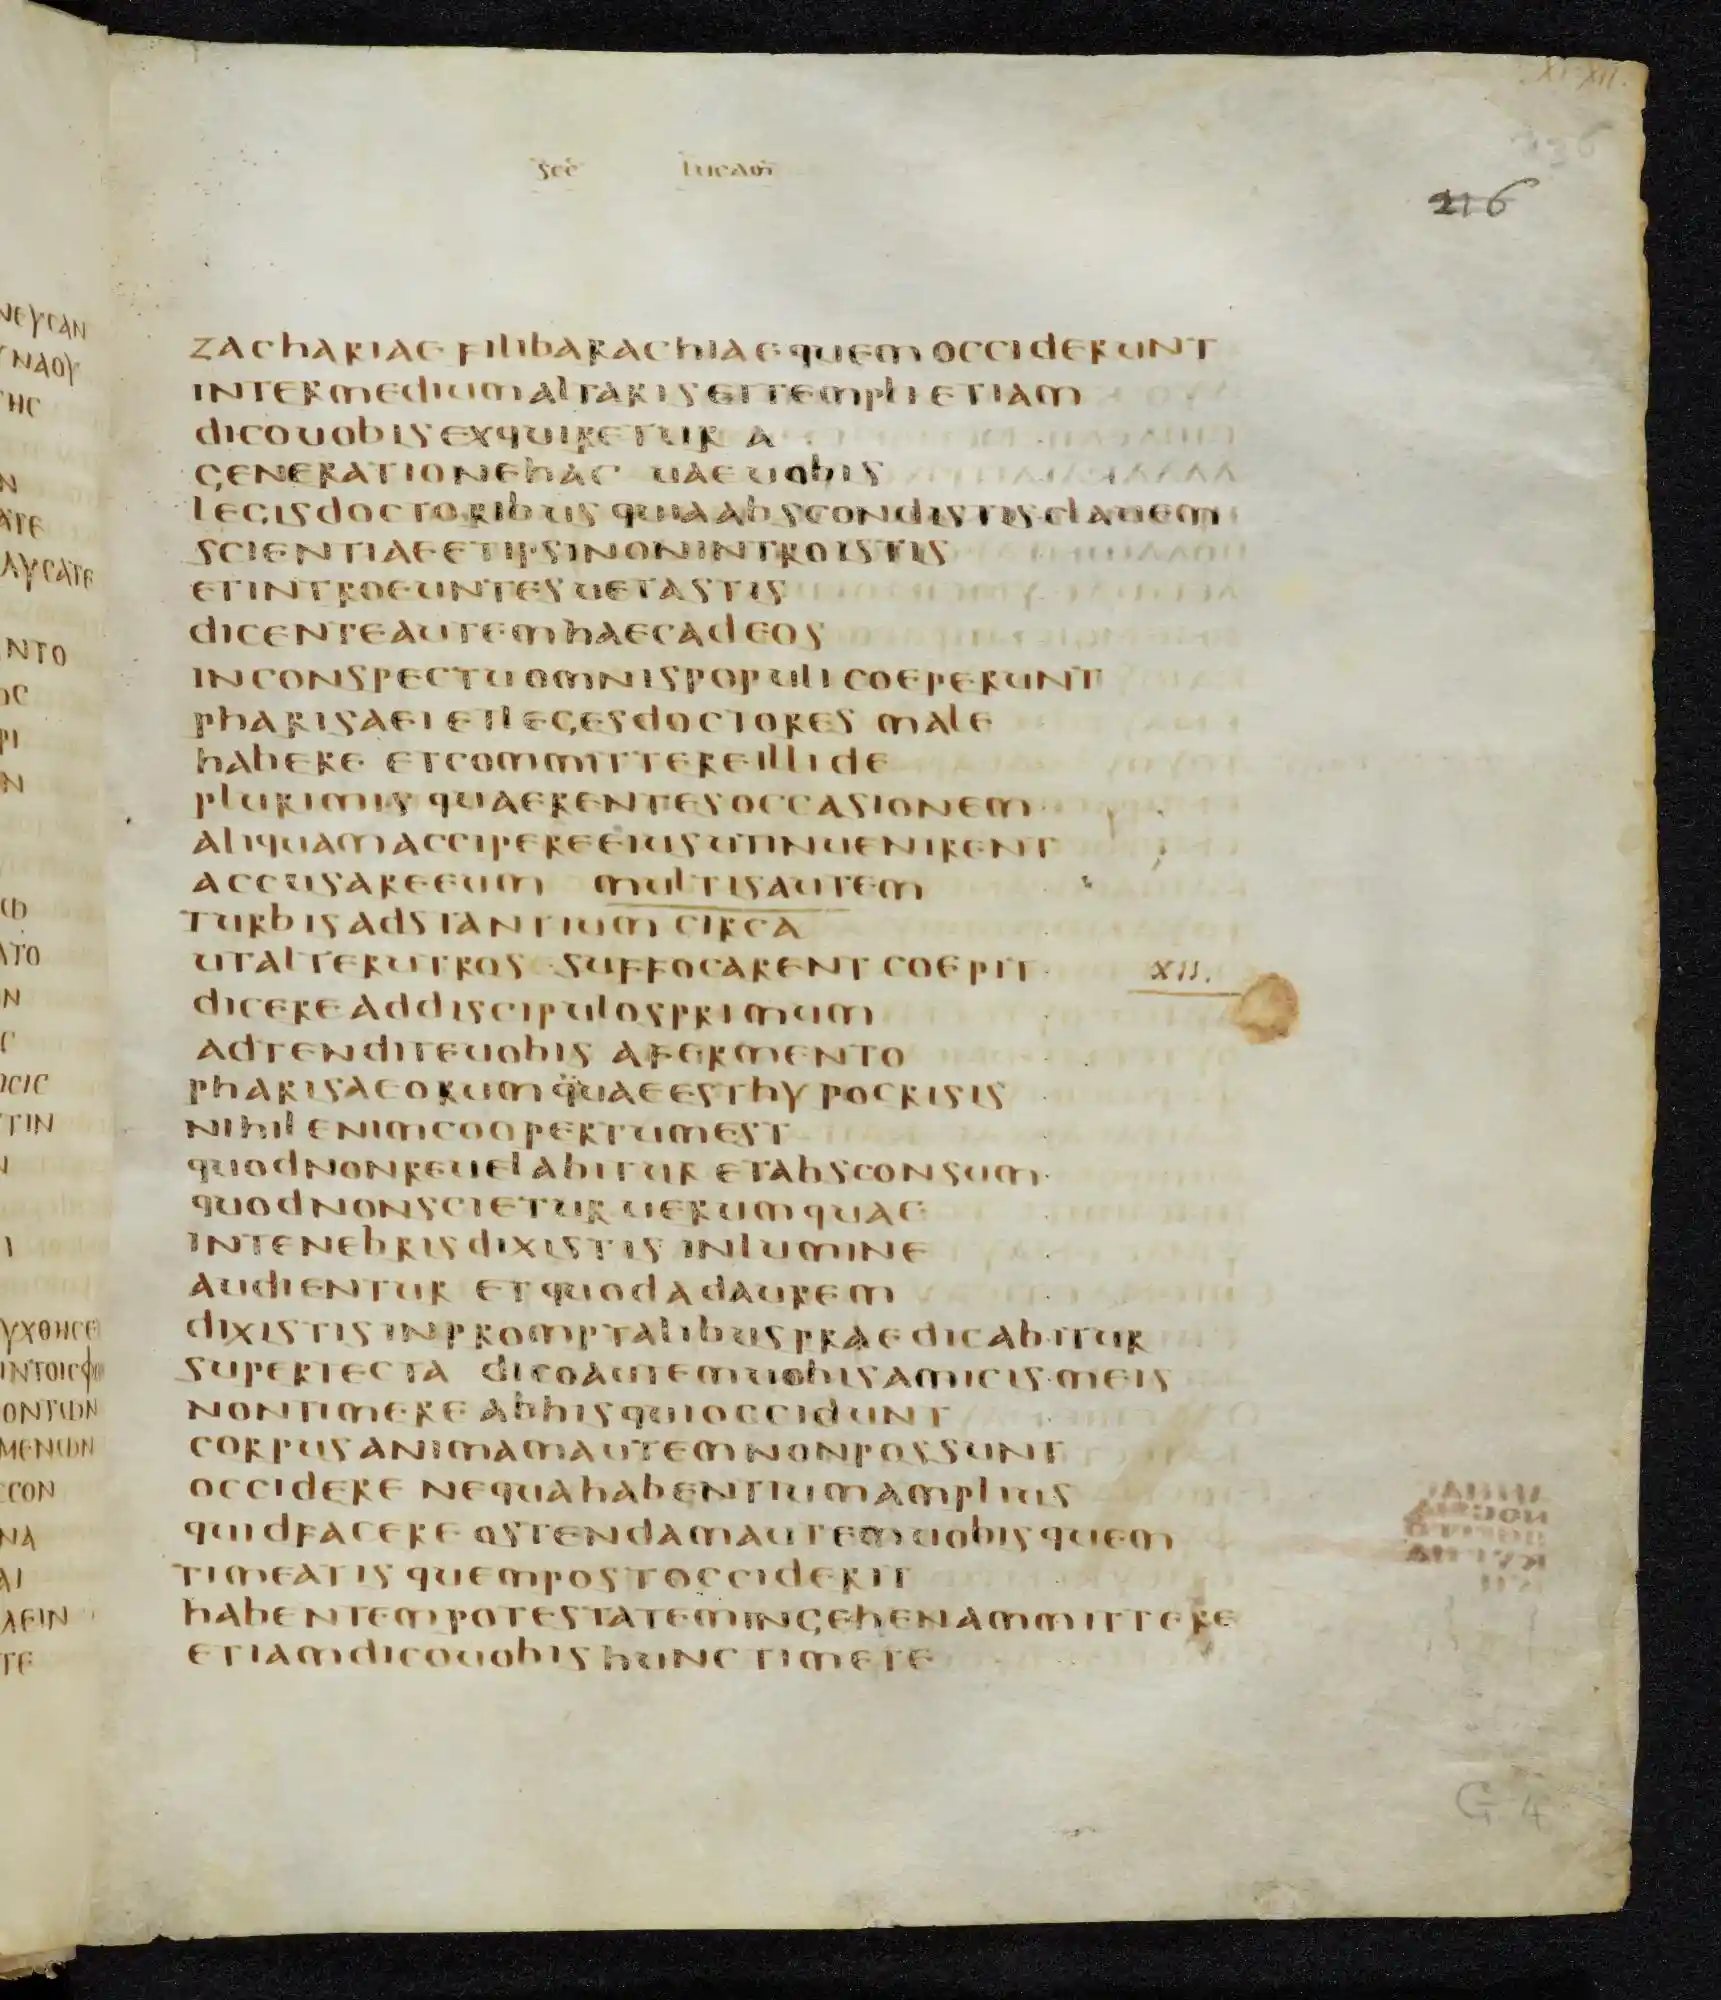 XI XII.
sec lucam
216
zachariae fili barachiae quem occiderunt
inter medium altaris et templi etiam
dico uobis exquiretur a
generatione hac uae uobis
legis doctoribus quia abscondistis clauem
scientiae et ipsi non introistis
et introeuntes uetastis
dicente autem haec ad eos
in conspectu omnis populi coeperunt
pharisaei et leges doctores male
habere et committere illi de
plurimis quaerentes occasionem
aliquam accipere eius ut inuenirent
accusare eum multis autem
turbis adstantium circa
ut alterutros suffocarent coepit
XII.
dicere ad discipulos primum
adtendite uobis a fermento
pharisaeorum quae est hypocrisis
nihil enim coopertum est
quod non reuelabitur et absconsum
quod non scietur uerum quae
in tenebris dixistis in lumine
audientur et quod ad aurem
dixistis in promptalibus praedicabitur
super tecta dico autem uobis amicis meis
non timere ab his qui occidunt
corpus animam autem non possunt
occidere nequa habentium amplius
quid facere ostendam autem uobis quem
timeatis quem post occiderit
habentem potestatem in gehenam mittere
etiam dico uobis hunc timete
G 4